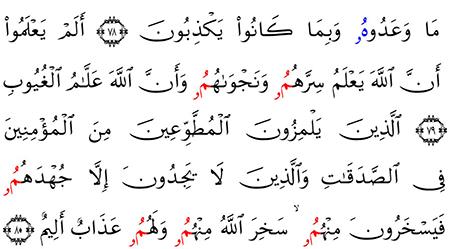 مَا وَعَدُوهُۥ وَبِمَا كَانُوا۟ يَكْذِبُونَ ۝٧٨ أَلَمْ يَعْلَمُوٓا۟
أَنَّ ٱللَّهَ يَعْلَمُ سِرَّهُمُۥ وَنَجْوَىٰهُمُۥ وَأَنَّ ٱللَّهَ عَلَّٰمُ ٱلْغُيُوبِ
۝٧٩ ٱلَّذِينَ يَلْمِزُونَ ٱلْمُطَّوِّعِينَ مِنَ ٱلْمُؤْمِنِينَ
فِى ٱلصَّدَقَٰتِ وَٱلَّذِينَ لَا يَجِدُونَ إِلَّا جُهْدَهُمُۥ
فَيَسْخَرُونَ مِنْهُمُۥ ۙ سَخِرَ ٱللَّهُ مِنْهُمُۥ وَلَهُمُۥ عَذَابٌ أَلِيمٌ ۝٨٠